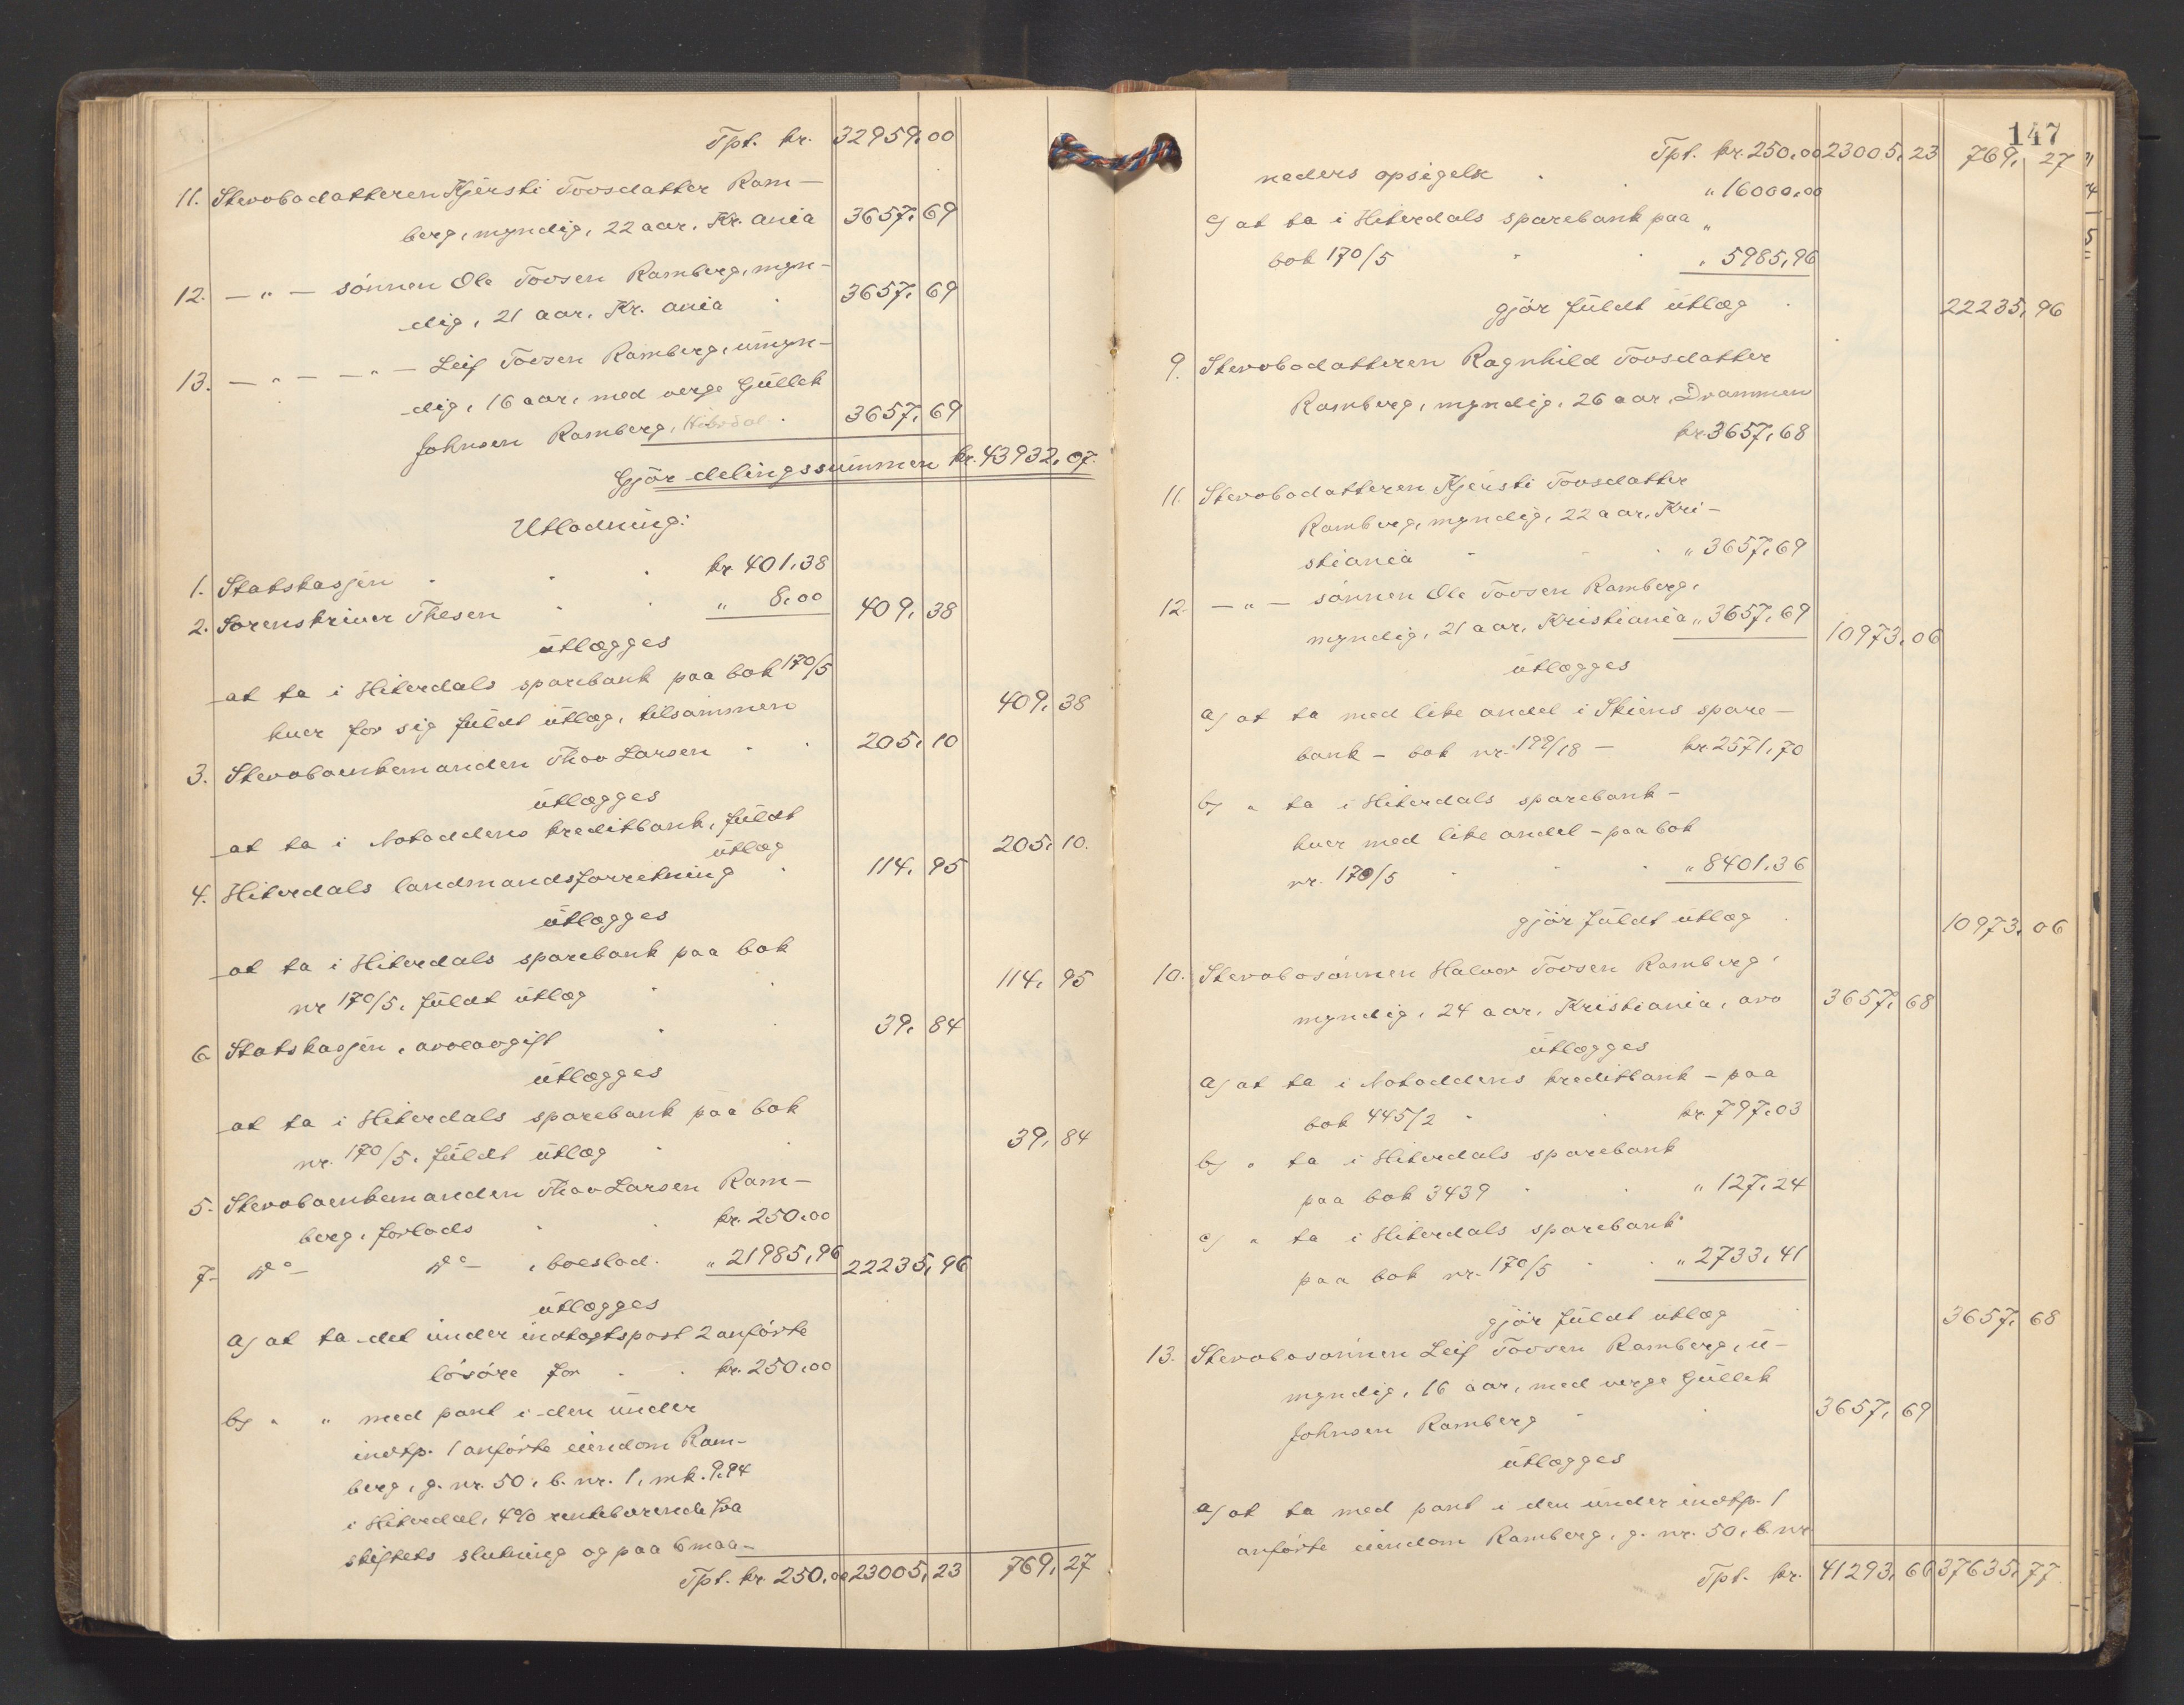 Tpt. kr. 32959,00
11. Stervbodatteren Kjersti Tovsdatter Ram-
berg, myndig, 22 aar, Kr.ania 3657,69
12. — " — sønnen Ole Tovsen Ramberg, myn-
dig, 21 aar, Kr.ania 3657,69
13. — " — — " — Leif Tovsen Ramberg, umyn-
dig, 16 aar, med verge Gullek
Johnsen Ramberg, Hiterdal. 3657,69
Gjør delingssummen kr. 43932,07.
Utlodning:
1. Statskassen kr 401,38
2. Sorenskriver Thesen " 8,00 409,38
utlægges
at ta i Hiterdals sparebank paa bok 170/5
hver for sig fuldt utlæg, tilsammen 409,38
3. Stervboenkemanden Thov Larsen 205,10
utlægges
at ta i Notoddens kreditbank, fuldt
utlæg 205,10.
4. Hiterdals landmandsforretning 114,95
utlægges
at ta i Hiterdals sparebank paa bok
nr 170/5, fuldt utlæg 114,95
6. Statskassen, arveavgift 39,84
utlægges
at ta i Hiterdals sparebank paa bok
nr. 170/5. fuldt utlæg 39,84
5. Stervboenkemanden Thov Larsen Ram-
berg, forlods kr. 250,00
7. do do , boeslod. " 21985,96 22235,96
utlægges
a) at ta det under indtægtspost 2 anførte
løsøre for kr. 250,00
b) " " med pant i den under
indtp. 1 anførte eiendom Ram-
berg, g. nr. 50, b. nr. 1, mk. 9,94
i Hiterdal, 4% rentebærende fra
skiftets slutning og paa 6 maa-
Tpt. kr. 250,00 23005,23 769,27
147
Tpt. kr. 250,00 23005,23 769,27
neders opsigelse " 16000,00
c) at ta i Hiterdals sparebank paa "
bok 170/5 " 5985,96
gjør fuldt utlæg 22235,96
9. Stervbodatteren Ragnhild Tovsdatter
Ramberg, myndig, 26 aar, Drammen
kr. 3657,68
11. Stervbodatteren Kjersti Tovsdatter
Ramberg, myndig, 22 aar, Kri-
stiania " 3657,69
12. — " — sønnen Ole Tovsen Ramberg,
myndig, 21 aar, Kristiania " 3657,69 10973,06
utlægges
a) at ta med like andel i Skiens spare-
bank - bok nr. 199/18 - kr 2571,70
b) " ta i Hiterdals sparebank -
hver med like andel - paa bok
nr. 170/5 " 8401,36
gjør fuldt utlæg 10973,06
10. Stervbosønnen Halvor Tovsen Ramberg,
myndig, 24 aar, Kristiania, arv 3657,68
utlægges
a) at ta i Notoddens kreditbank - paa
bok 445/2 kr. 797,03
b) " ta i Hiterdals sparebank
paa bok 3439 " 127,24
c) " ta i Hiterdals sparebank
paa bok nr. 170/5 " 2733,41
gjør fuldt utlæg 3657,68
13. Stervbosønnen Leif Tovsen Ramberg, u-
myndig, 16 aar, med verge Gullek
Johnsen Ramberg 3657,69
utlægges
a) at ta med pant i den under indtp. 1
anførte eiendom Ramberg, g. nr. 50, b. nr
Tpt. kr. 41293,66 37635,77